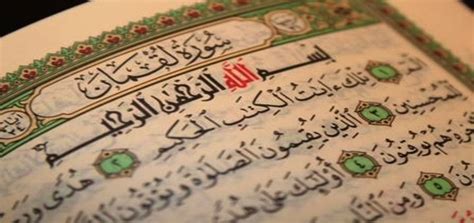 سُورَةُ لُقْمَانَ
بِسْمِ اللَّهِ الرَّحْمَٰنِ الرَّحِيمِ
الٓمٓ ١ تِلْكَ ءَايَٰتُ ٱلْكِتَٰبِ ٱلْحَكِيمِ ٢ هُدًى
لِّلْمُحْسِنِينَ ٣ ٱلَّذِينَ يُقِيمُونَ ٱلصَّلَوٰةَ وَيُؤْتُونَ
هُمْ يُوقِنُونَ ٤ أُو۟لَٰٓئِكَ عَلَىٰ هُدًى
٥ وَمِنَ